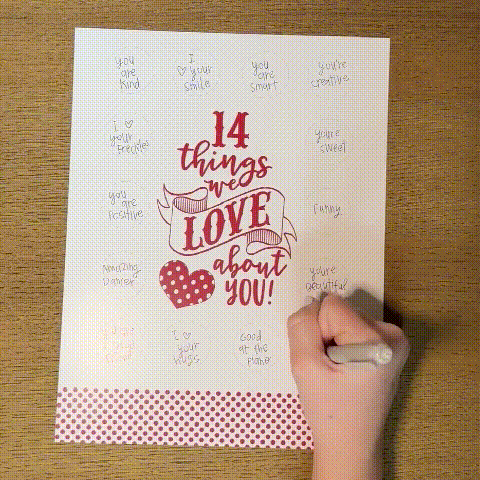 you
are
kind
I
♡ your
smile
you
are
smart
you're
creative
I ♡
your
freckles
14
things
we
LOVE
about
YOU!
you're
sweet
you
are
positive
Funny
Amazing
Dancer
you're
beautiful
I ♡
your
hugs
Good
at the
piano